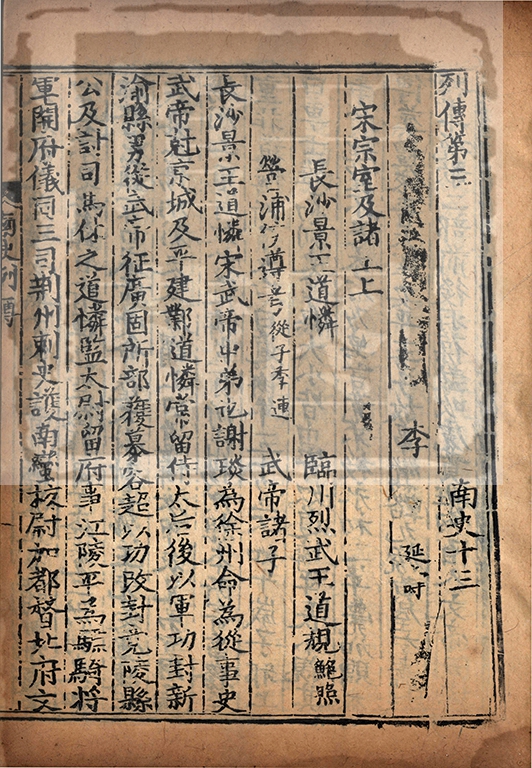 列傳第三 南史十三
李 延
宋宗室及諸王上
長沙景王道憐 臨川烈武王道規 鮑照
營浦侯遵考 從子季連 武帝諸子
長沙景王道憐宋武帝中弟也謝琰為徐州命為從事史
武帝克京城及平建鄴道憐常留侍太后後以軍功封新
渝縣男從武帝征廣固所部獲慕容超以功改封竟陵縣
公及討司馬休之道憐監太尉留府事江陵平為驃騎將
軍開府儀同三司荆州刺史護南蠻校尉加都督北府文